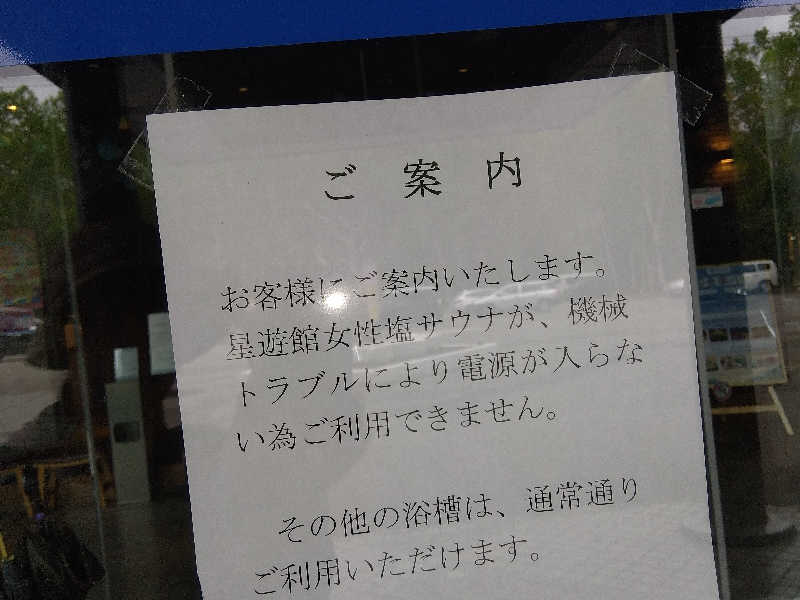 ご案内
お客様にご案内いたします。
星遊館女性塩サウナが、機械
トラブルにより電源が入らな
い為ご利用できません。
その他の浴槽は、通常通り
ご利用いただけます。